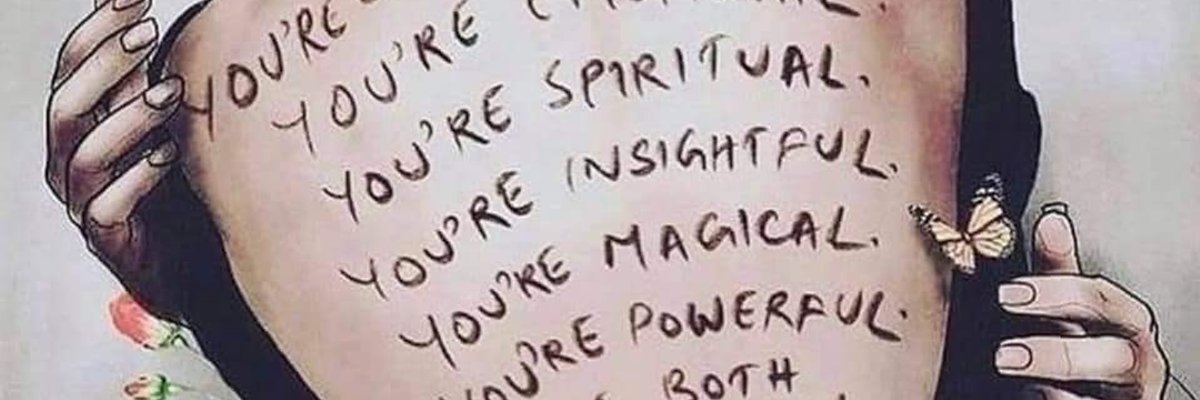 YOU'RE
YOU'RE
YOU'RE SPIRITUAL.
YOU'RE INSIGHTFUL.
YOU'RE MAGICAL.
YOU'RE POWERFUL.
BOTH